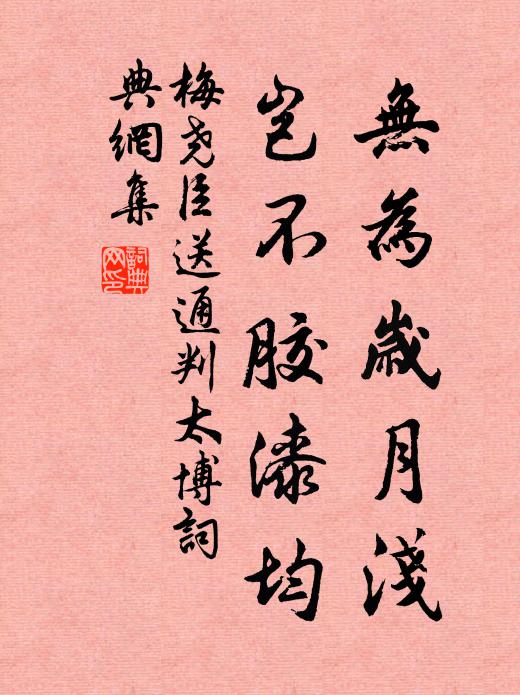 無為歲月淺
豈不膠漆均
梅堯臣送通判太博詞
典網集
詞典網印